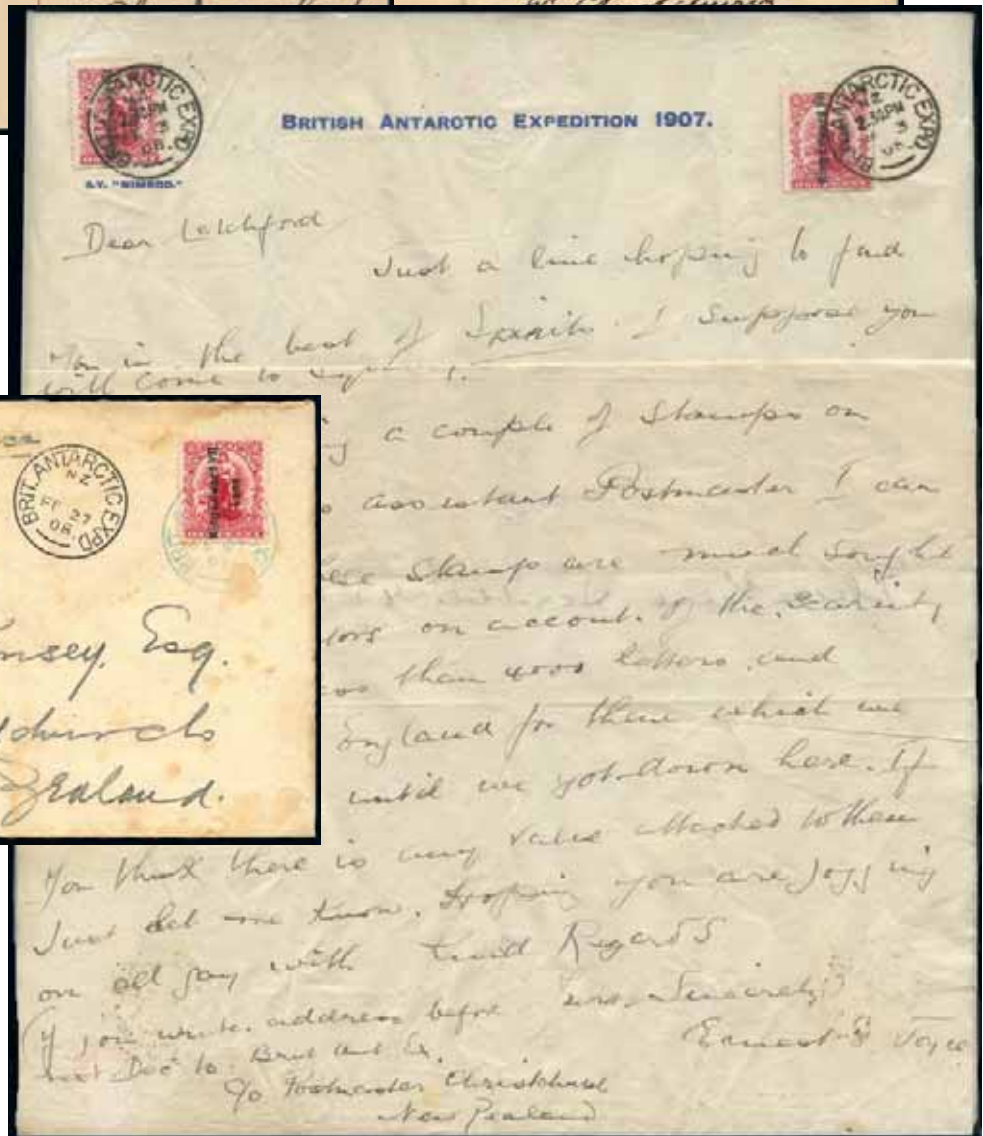 BRITISH ANTARCTIC EXPEDITION 1907.
BRIT. ANTARCTIC EXPD.
NZ
3
08.
BRIT. ANTARCTIC EXPD.
NZ
2.30PM
3
08.
S.Y. "NIMROD."
Dear Latchford
Just a line hoping to find
You in the best of Spirits. I suppose you
will come to
a couple of Stamps on
assistant Postmaster I can
Stamps are much sought
on account. of the. Scarcity
than 4000 letters and
England for them which we
until we got down here. If
You think there is any value attached to them
Just let me know. Hoping you are Jogging
on all with Kind Regards
Sincerely
Ernest Joyce
if you write. address before
Dec to. Brit Ant Ex.
c/o Postmaster Christchurch
New Zealand
BRIT. ANTARCTIC EXPD.
NZ
FE 27
08.
King Edward VII
Land
nsey Esq.
church
Zealand.